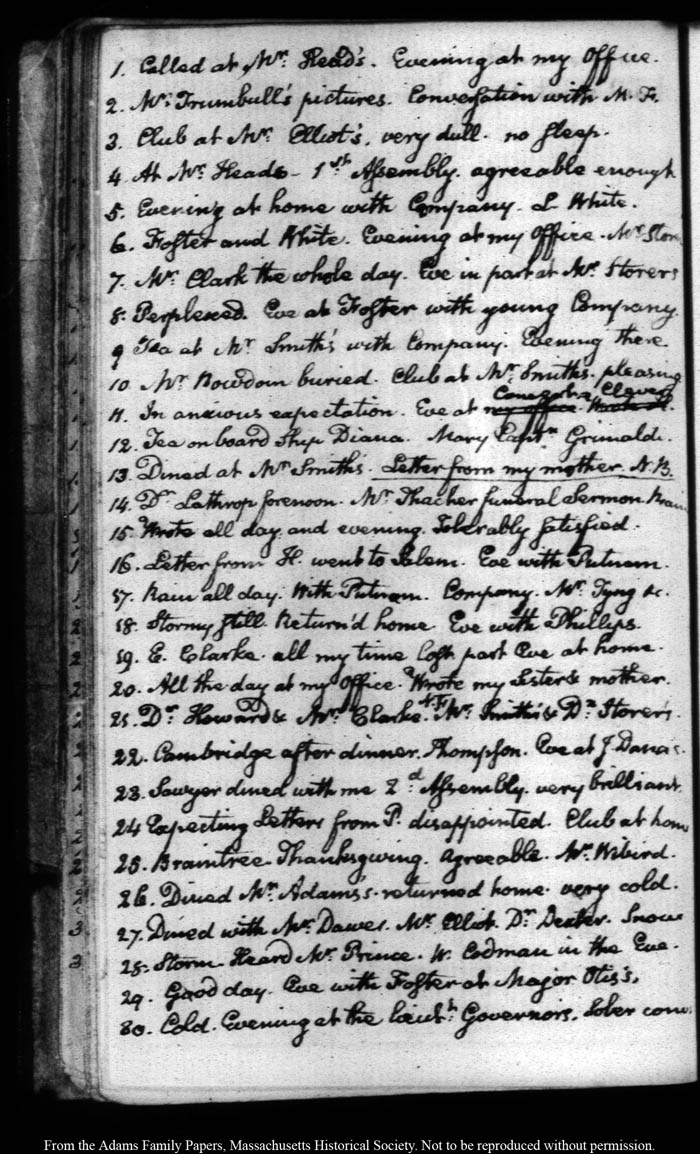 1. Called at Mr: Head's. Evening at my Office.
2. Mr: Trumbull's pictures. Conversation with M. F.
3. Club at Mr: Elliot's, very dull. no sleep.
4. At Mr: Heads - 1st: Assembly. agreeable enough
5. Evening at home with Company. L. White.
6. Foster and White. Evening at my Office. Mr: Stor
7. Mr: Clark the whole day. Eve in part at Mr: Storers
8. Perplexed. Eve at Foster with young Company.
9 Tea at Mr: Smith's with Company. Evening there
10 Mr: Bowdoin buried. Club at Mr: Smiths. pleasing
11. In anxious expectation. Eve at my office.
12. Tea on board Ship Diana. Mary Captn Grimaldi.
13. Dined at Mr: Smith's. Letter from my mother. N. B.
14. Dr: Lathrop forenoon. Mr: Thacher funeral Sermon
15. Wrote all day and evening. Tolerably satisfied.
16. Letter from H. went to Salem. Eve with Putnam.
17. Rain all day. With Putnam. Company. Mr: Tyng &c.
18. Stormy still. Return'd home. Eve with Phillips.
19. E. Clarke. all my time lost part Eve at home.
20. All the day at my Office. Wrote my Sister & mother.
21. Dr: Howard & Mr: Clarke. Mr: Smith's & Dr: Storer's.
22. Cambridge after dinner. Thompson. Eve at J Dawes.
23. Sawyer dined with me 2d: Assembly. very brilliant.
24 Expecting Letters from P. disappointed. Club at home
25. Braintree. Thanksgiving. agreeable. Mr: Wibird.
26. Dined Mr: Adams's. returned home. very cold.
27. Dined with Mr: Dawes. Mr: Elliot. Dr: Dexter. Snow
28. Storm. Heard Mr: Prince. W. Codman in the Eve.
29. Good day. Eve with Foster at Major Otis's.
30. Cold. Evening at the Lieut: Governors. Sober
From the Adams Family Papers, Massachusetts Historical Society. Not to be reproduced without permission.